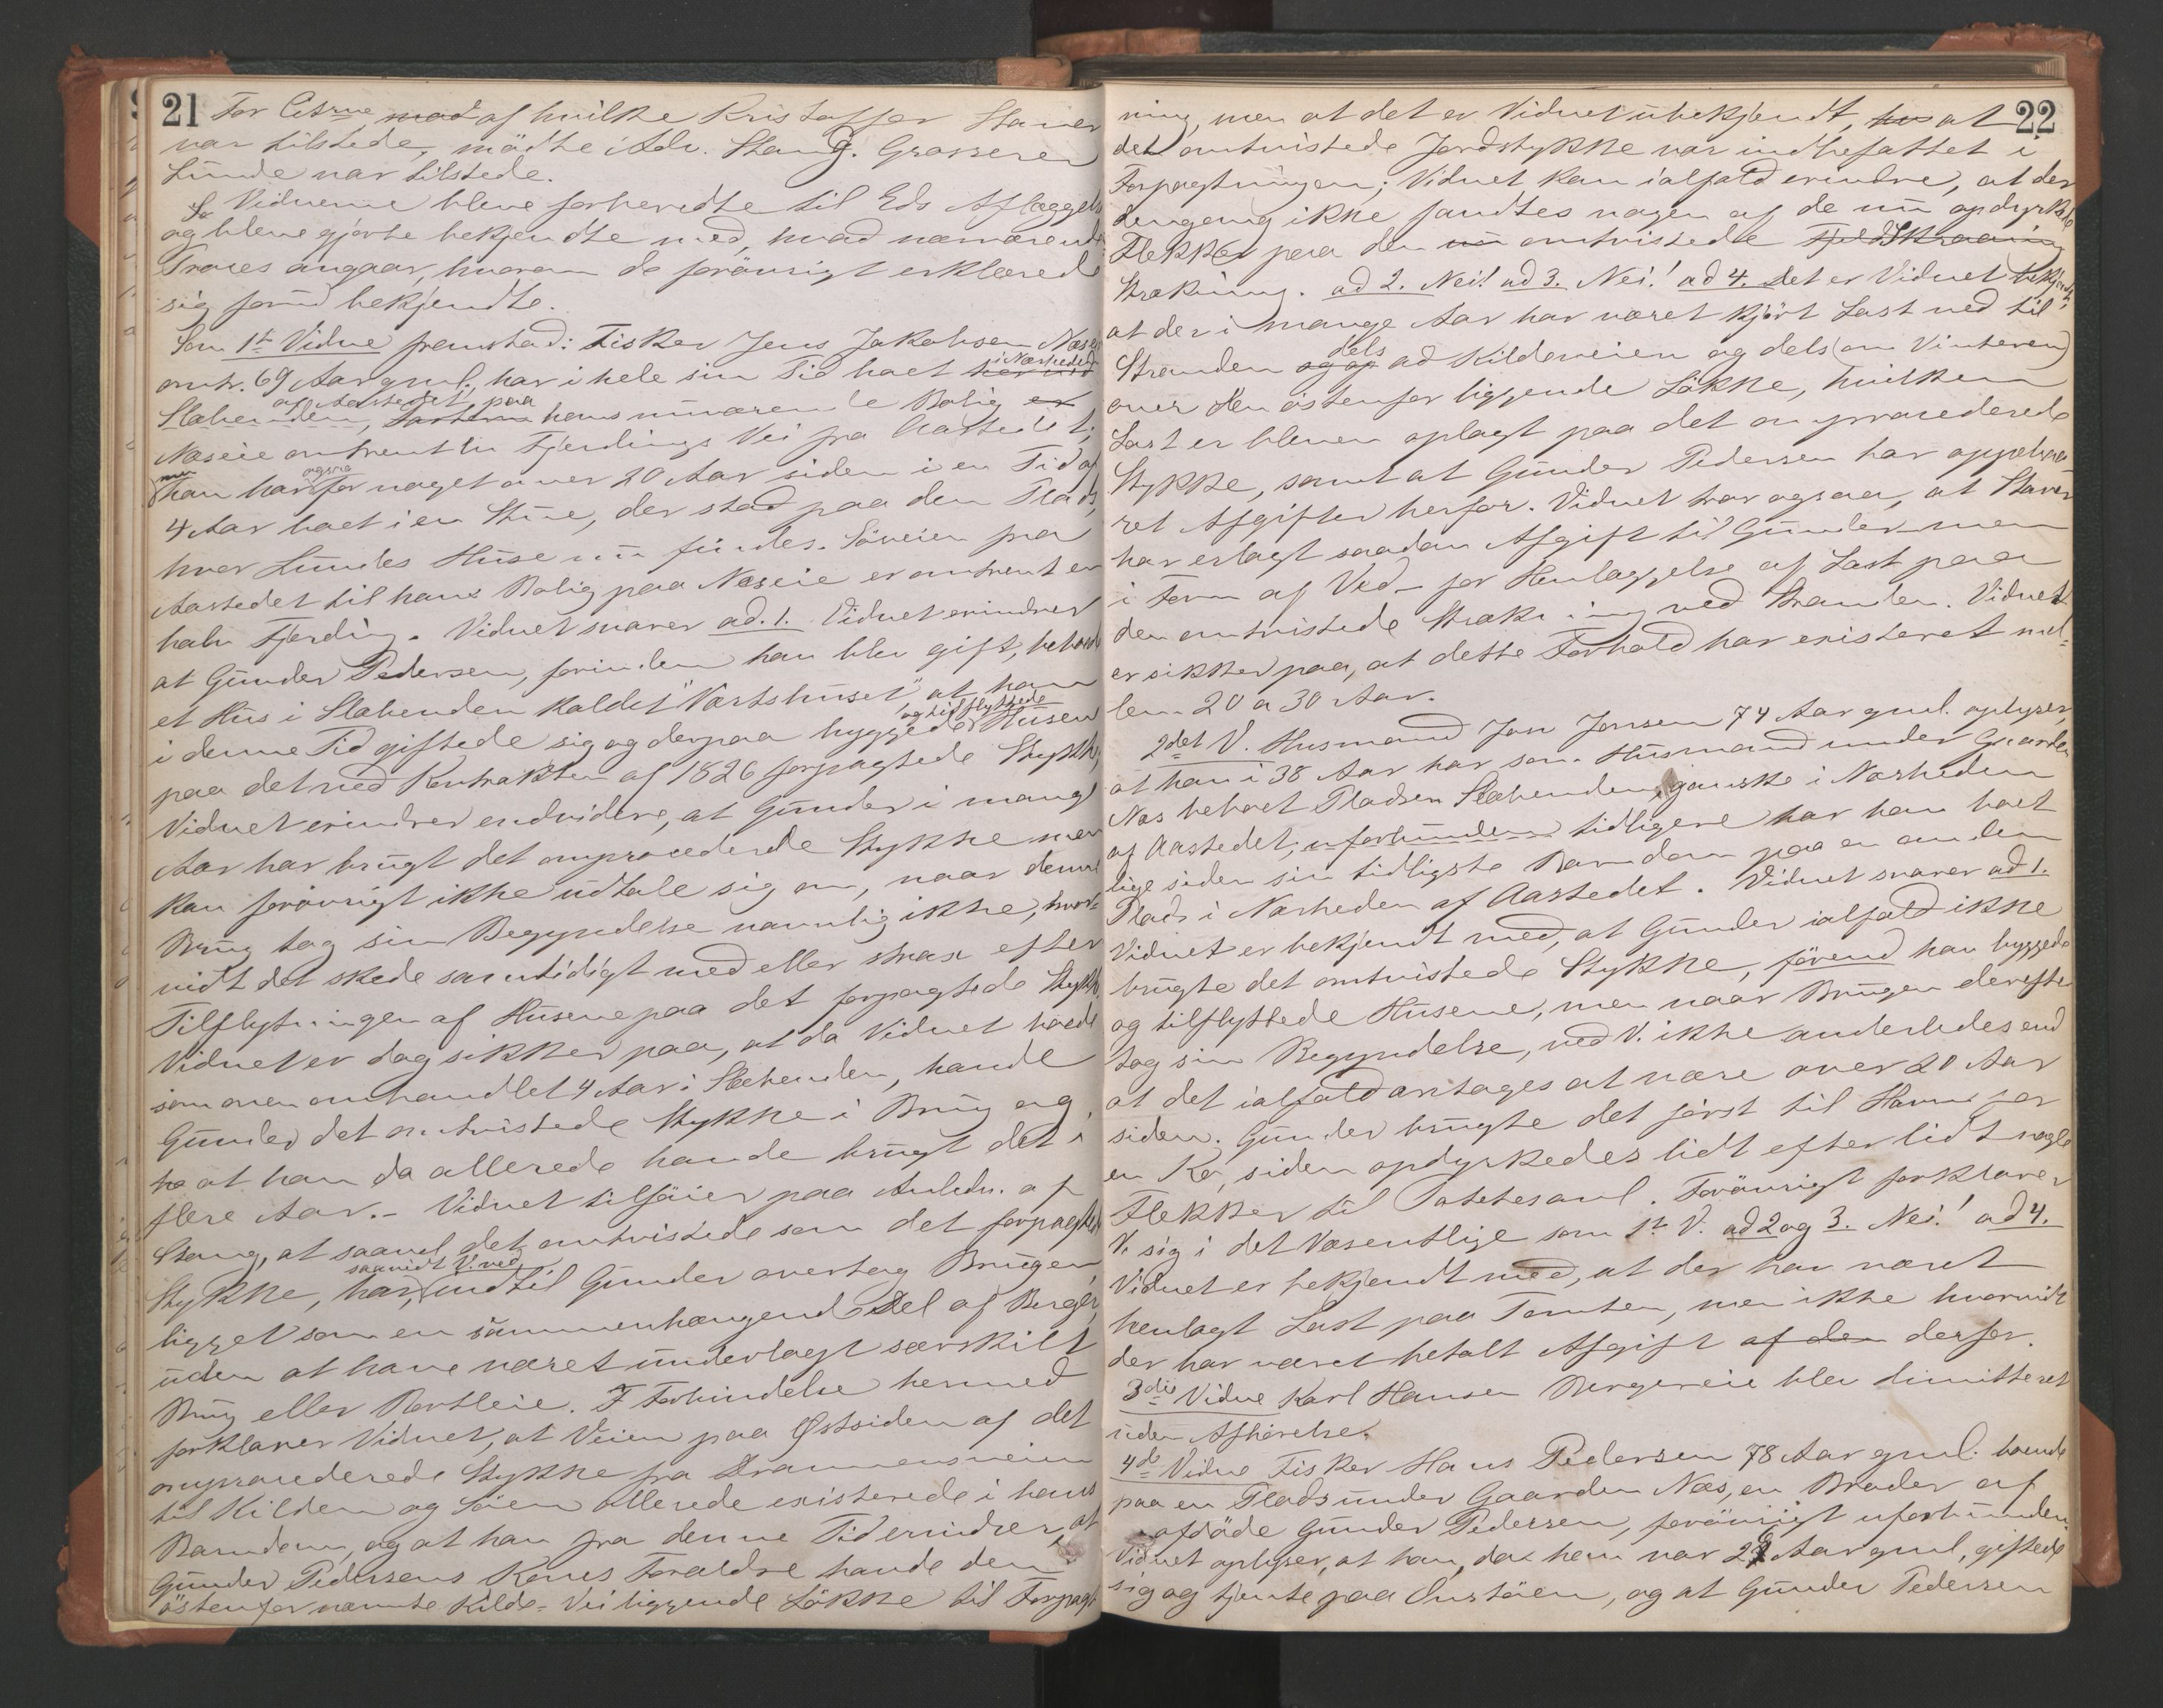 21
For Citrne mod af hvilke Kristoffer Staver
var tilstede, mödte Adv. Stang. Grosserer
Lunde var tilstede.
Vidnerne bleve forberedte til Eds Aflæggelse
og bleve gjorte bekjendte med, hvad nærværende
Proces angaar, hvorom de forövrigt erklærede
sig forud bekjendte.
Som 1st Vidne fremstod: Fisker Jens Jakobsen Næseie
omtr. 69 Aar gml., har i hele sin Tid boet har ved i Nærheden
af Aastedet, paa
Slæbenden, hans nuværende Bolig er
Næseie omtrent en Fjerdings Vei fra Aastedet;
men han har ogsaa for noget over 20 Aar siden i en Tid af
4 Aar boet i en Stue, der stod paa den Plads,
hvor Lundes Huse nu findes. Söveien fra
Aastedet til hans Bolig paa Næseie er omtrent en
halv Fjerding. Vidnet svarer ad. 1. Vidnet erindrer
at Gunder Pedersen, forinden han blev gift, beboede
et Hus i Slæbenden kaldet "Værtshuset", at han
i denne Tid giftede sig og derpaa byggede og tilflyttede Husene
paa det ved Kontrakten af 1826 forpagtede Stykke,
Vidnet erindrer endvidere, at Gunder i mange
Aar har brugt det omprocederede Stykke men
kan forövrigt ikke udtale sig om, naar denne
Brug tog sin Begyndelse navnlig ikke, hvor-
vidt det skede samtidigt med eller strax efter
Tilflytningen af Husene paa det forpagtede Stykke.
Vidnet er dog sikker paa, at da Vidnet boede
som oven omhandlet 4 Aar i Slæbenden, havde
Gunder det omtvistede Stykke i Brug og
ha at han da allerede havde brugt det i
flere Aar. – Vidnet tilföier paa Anledn. af
Stang, at saavel det omtvistede som det forpagtede
Stykke, har, saavidt V. ved, indtil Gunder overtog Brugen,
ligget som en sammenhængende Del af Berger,
uden at have været underlagt særskilt
Brug eller Bortleie. I Forbindelse hermed
forklarer Vidnet, at Veien paa Østsiden af det
omprocederede Stykke fra Drammensveien
til Kilden og Söen allerede existerede i hans
Barndom, og at han fra denne Tid erindrer, at
Gunder Pedersens Kones Forældre havde den
östenfor nævnte Kilde-Vei liggende Lökke til Forpagt
22
ning, men at det er Vidnet ubekjendt, hvo at
det omtvistede Jordstykke var indbefattet i
Forpagtningen; Vidnet kan ialfald erindre, at der
dengang ikke fandtes nogen af de nu opdyrkede
Flekker paa den nu omtvistede Fjeldskraaning
Strækning. ad 2. Nei! ad 3. Nei! ad 4. Det er Vidnet bekjendt,
at der i mange Aar har været kjört Last ned til
Stranden og op dels ad Kildeveien og dels (om Vinteren)
over den östenfor liggende Lökke, hvilken
Last er bleven oplagt paa det omprocederede
Stykke, samt at Gunder Pedersen har oppebaa-
ret Afgifter herfor. Vidnet tror ogsaa, at Staver
har erlagt saadan Afgift til Gunder men
i Form af Ved – for Henlæggelse af Last paa
den omtvistede Strækning ved Stranden. Vidnet
er sikker paa, at dette Forhold har existeret mel-
lem 20 a 30 Aar.
2det V. Husmand Jon Jonsen 74 Aar gml. oplyser,
at han i 38 Aar har som Husmand under Gaarden
Næs beboet Pladsen Slæbenden, ganske i Nærheden
af Aastedet; uforbunden tidligere har han boet
lige siden sin tidligste Barndom paa en anden
Plads i Nærheden af Aastedet. Vidnet svarer ad 1.
Vidnet er bekjendt med, at Gunder ialfald ikke
brugte det omtvistede Stykke, förend han byggede
og tilflyttede Husene, men naar Brugen derefter
tog sin Begyndelse, ved V. ikke anderledes end
at det ialfald antages at være over 20 Aar
siden. Gunder brugte det först til Havn for
en Ko, siden opdyrkedes lidt efter lidt nogle
Flekker til Potetesavl. Forövrigt forklarer
V. sig i det Væsentlige som 1st V. ad 2 og 3. Nei! ad 4.
Vidnet er bekjendt med, at der har været
henlagt Last paa Tomten, men ikke hvorvidt
der har været betalt Afgift af den derfor.
3die Vidne Karl Hansen Bergereie blev dimitteret
uden Afhörelse.
4de Vidne Fisker Hans Pedersen 78 Aar gml. boende
paa en Plads under Gaarden Næs, en Broder af
afdöde Gunder Pedersen, forövrigt uforbunden.
Vidnet oplyser, at han, da han var 27 Aar gml, giftede
sig og tjente paa Ostöen, og at Gunder Pedersen